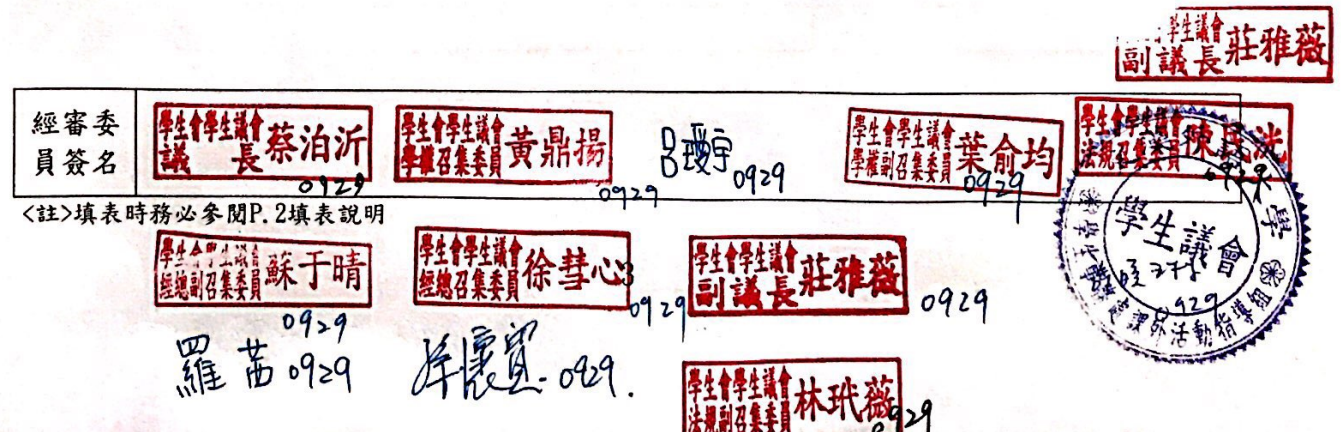 學生議會
副議長 莊雅薇
經審委員簽名
學生會學生議會 議長 蔡泊沂 0929
學生會學生議會 學權召集委員 黃鼎揚 0929
0929
學生會學生議會 學權副召集委員 葉俞均 0929
學生會學生議會 法規召集委員 陳
<註>填表時務必參閱P.2填表說明
學生會學生議會 經總副召集委員 蘇于晴 0929
學生會學生議會 經總召集委員 徐彗心 0929
學生會學生議會 副議長 莊雅薇 0929
學生議會
0929
課外活動指導組
羅茜 0929
0929.
學生會學生議會 法規副召集委員 林玳薇 0929